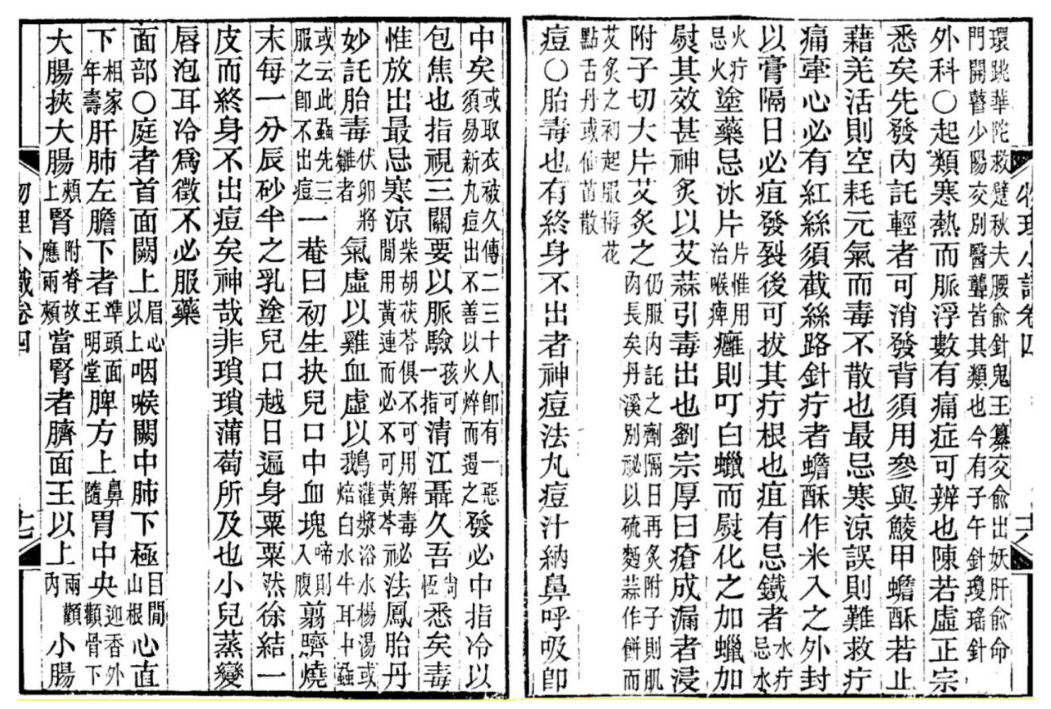 環跳華陀救躄秋夫腰俞針鬼王纂交俞出妖肝俞命
門開瞽少陽交別醫聾皆其類也今有子午針瓊瑤針
外科○起類寒熱而脈浮數有痛症可辨也陳若虛正宗
悉矣先發內託輕者可消發背須用參與鯪甲蟾酥若止
藉羌活則空耗元氣而毒不散也最忌寒涼誤則難救疔
痛牽心必有紅絲須截絲路針疔者蟾酥作米入之外封
以膏隔日必疽發裂後可拔其疔根也疽有忌鐵者水疔忌水
火疔忌火塗藥忌冰片片惟用治喉痺癰則叮白蠟而熨化之加蠟加
熨其效甚神炙以艾蒜引毒出也劉宗厚曰瘡成漏者浸
附子切大片艾炙之仍服內託之劑隔日再炙附子則肌肉長矣丹溪別祕以硫麪蒜作餅而
艾炙之初起服梅花點舌丹或仙苗散
痘○胎毒也有終身不出者神痘法丸痘汁納鼻呼吸即
物理小識卷四
十六
中矣或取衣被久傳二三十人即有一惡須易新丸痘出不善以火焠而遏之發必中指冷以
包焦也指視三關要以脈驗孩可一指清江聶久吾尚恆悉矣毒
惟放出最忌寒涼柴胡茯苓俱不可用解毒必閒用黃連而必不可黃芩祕法鳳胎丹
妙託胎毒伏卵將雛者氣虛以雞血虛以鵝灌漿浴水楊湯或焙白水牛耳中蝨
或云此蝨先三服之即不出痘一菴曰初生抉兒口中血塊啼則入腹翦臍燒
末每一分辰砂半之乳塗兒口越日遍身粟粟然徐結一
皮而終身不出痘矣神哉非瑣瑣蒲萄所及也小兒蒸變
唇泡耳冷為徵不必服藥
面部○庭者首面闕上眉心以上咽喉闕中肺下極目間山根心直
下相家年壽肝肺左膽下者準頭面王明堂脾方上鼻隧胃中央迎香外顴骨下
大腸挾大腸頰上腎附脊故應兩頰當腎者臍面王以上兩顴內小腸
物理小識卷四
七